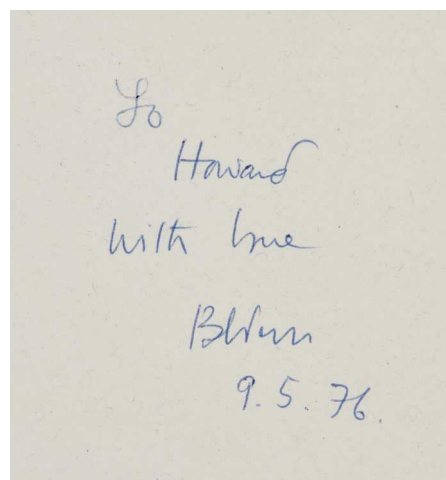 To
Howard
with love
9.5.76.